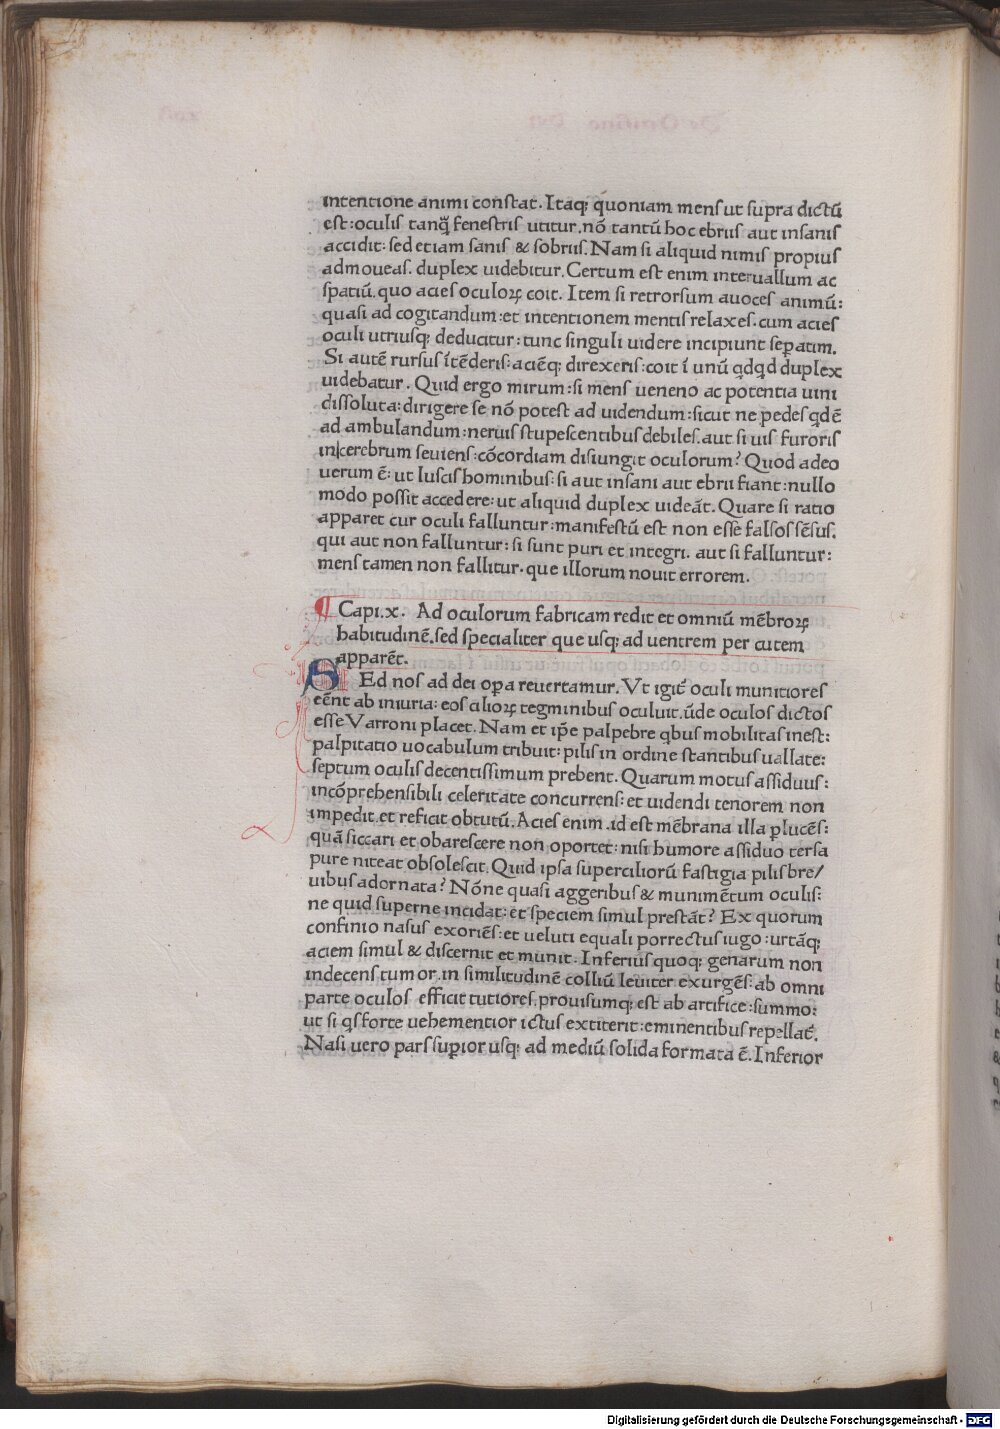 intentione animi constat. Itaqꝫ quoniam mens ut supra dictū
est: oculis tanꝙ̄ fenestris utitur. nō tantū hoc ebriis aut insanis
accidit: sed etiam sanis & sobriis. Nam si aliquid nimis propius
admoueas. duplex uidebitur. Certum est enim interuallum ac
spatiū. quo acies oculoꝝ coit. Item si retrorsum auoces animū:
quasi ad cogitandum: et intentionem mentis relaxes. cum acies
oculi utriusqꝫ deducitur: tunc singuli uidere incipiunt seꝑatim.
Si autē rursus ītēderis: aciēqꝫ direxeris: coit ī unū qdqd duplex
uidebatur. Quid ergo mirum: si mens ueneno ac potentia uini
dissoluta: dirigere se nō potest ad uidendum: sicut ne pedes qdē
ad ambulandum: neruis stupescentibus debiles. aut si uis furoris
in cerebrum seuiens: cōcordiam disiungit oculorum? Quod adeo
uerum ē: ut luscis hominibus: si aut insani aut ebrii fiant: nullo
modo possit accedere: ut aliquid duplex uideāt. Quare si ratio
apparet cur oculi falluntur: manifestū est non esse falsos sēsus.
qui aut non falluntur: si sunt puri et integri. aut si falluntur:
mens tamen non fallitur. que illorum nouit errorem.
¶ Capi.x. Ad oculorum fabricam redit et omniū mēbroꝝ
habitudinē. sed specialiter que usqꝫ ad uentrem per cutem
apparēt.
SEd nos ad dei oꝑa reuertamur. Vt igit̄ oculi munitiores
eēnt ab iniuria: eos cilioꝝ tegminibus oculuit. ūde oculos dictos
esse Varroni placet. Nam et ip̄e palpebre qbus mobilitas inest:
palpitatio uocabulum tribuit: pilis in ordine stantibus uallate:
septum oculis decentissimum prebent. Quarum motus assiduus:
incōprehensibili celeritate concurrens: et uidendi tenorem non
impedit. et reficit obtutū. Acies enim .id est mēbrana illa ꝑlucēs:
quā siccari et obarescere non oportet: nisi humore assiduo tersa
pure niteat obsolescit. Quid ipsa superciliorū fastigia pilis bre/
uibus adornata? Nōne quasi aggeribus & munimētum oculis:
ne quid superne incidat: et speciem simul prestāt? Ex quorum
confinio nasus exoriēs: et ueluti equali porrectus iugo: utrāqꝫ
aciem simul & discernit et munit. Inferius quoqꝫ genarum non
indecens tumor. in similitudinē colliū leuiter exurgēs: ab omni
parte oculos efficit tutiores. prouisumqꝫ est ab artifice: summo:
ut si qs forte uehementior ictus extiterit: eminentibus repellat̄.
Nasi uero pars suꝑior usqꝫ ad mediū solida formata ē. Inferior
Digitalisierung gefördert durch die Deutsche Forschungsgemeinschaft - DFG